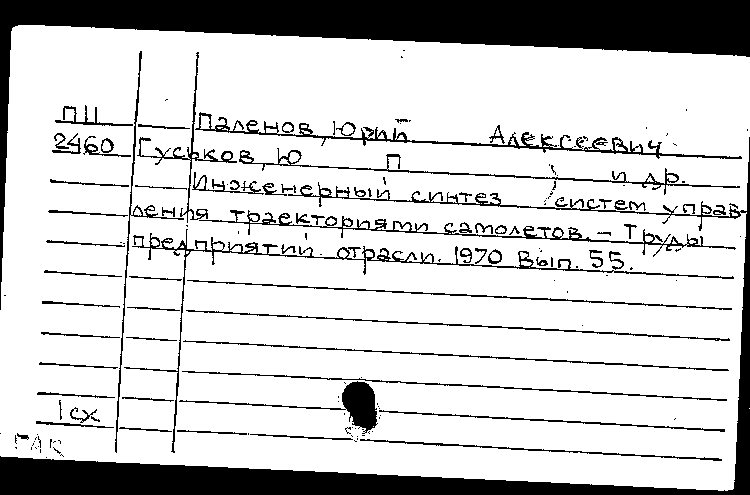 П11 Паленов, Юрий Алексеевич
2460 Гуськов, Ю П и др.
Инженерный синтез систем управ-
ления траекториями самолетов. – Труды
предприятий отрасли. 1970 Вып. 55.
1 сх
ГАК